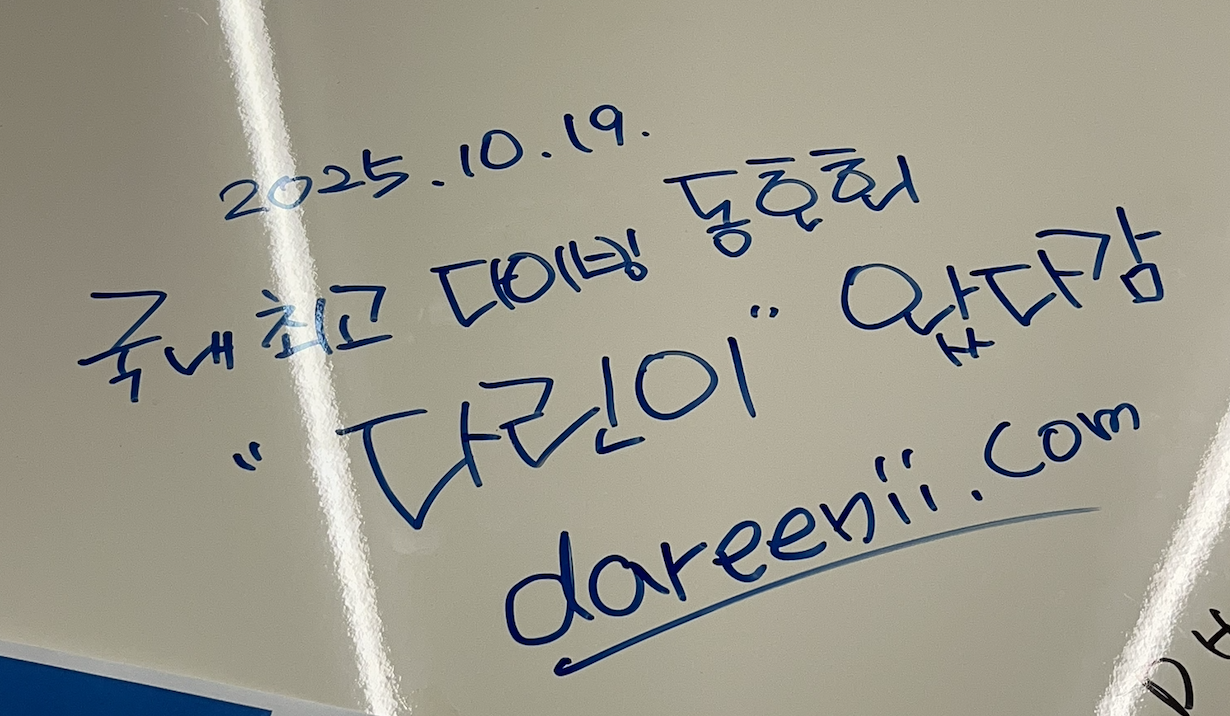 2025.10.19.
국내 최고 다이빙 동호회
"다린이" 왔다감
dareenii.com
DH